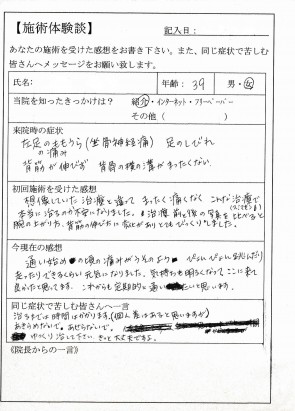 【施術体験談】 記入日：
あなたの施術を受けた感想をお書き下さい。また、同じ症状で苦しむ
皆さんへメッセージをお願い致します。
氏名: 年齢: 39 男・女
当院を知ったきっかけは? 紹介・インターネット・フリーペーパー
その他（ ）
来院時の症状
左足のももうら(坐骨神経痛) 足のしびれ
の痛み
背筋が伸びず 背骨の横の溝がまったくない
初回施術を受けた感想
想像していた治療と違って まったく痛くなく こんな治療で
本当に治るのか不安になりました。治療前と後の写真を比べると
腰の上がり方、背筋の伸び方に差がありとてもびっくりしました。
今現在の感想
通い始めの頃の痛みがうそのよう ぴょんぴょん跳んだり
走ったりできるくらい元気になりました。気持ちも明るくなってここに来て
良かったと思います。これからも定期的に通いたいと思います。
同じ症状で苦しむ皆さんへ一言
治るまでは時間はかかります。(個人差はあると思いますが)
あきらめないで。あせらないで。
ゆっくり治して下さい。きっと大丈夫ですよ。
《院長からの一言》